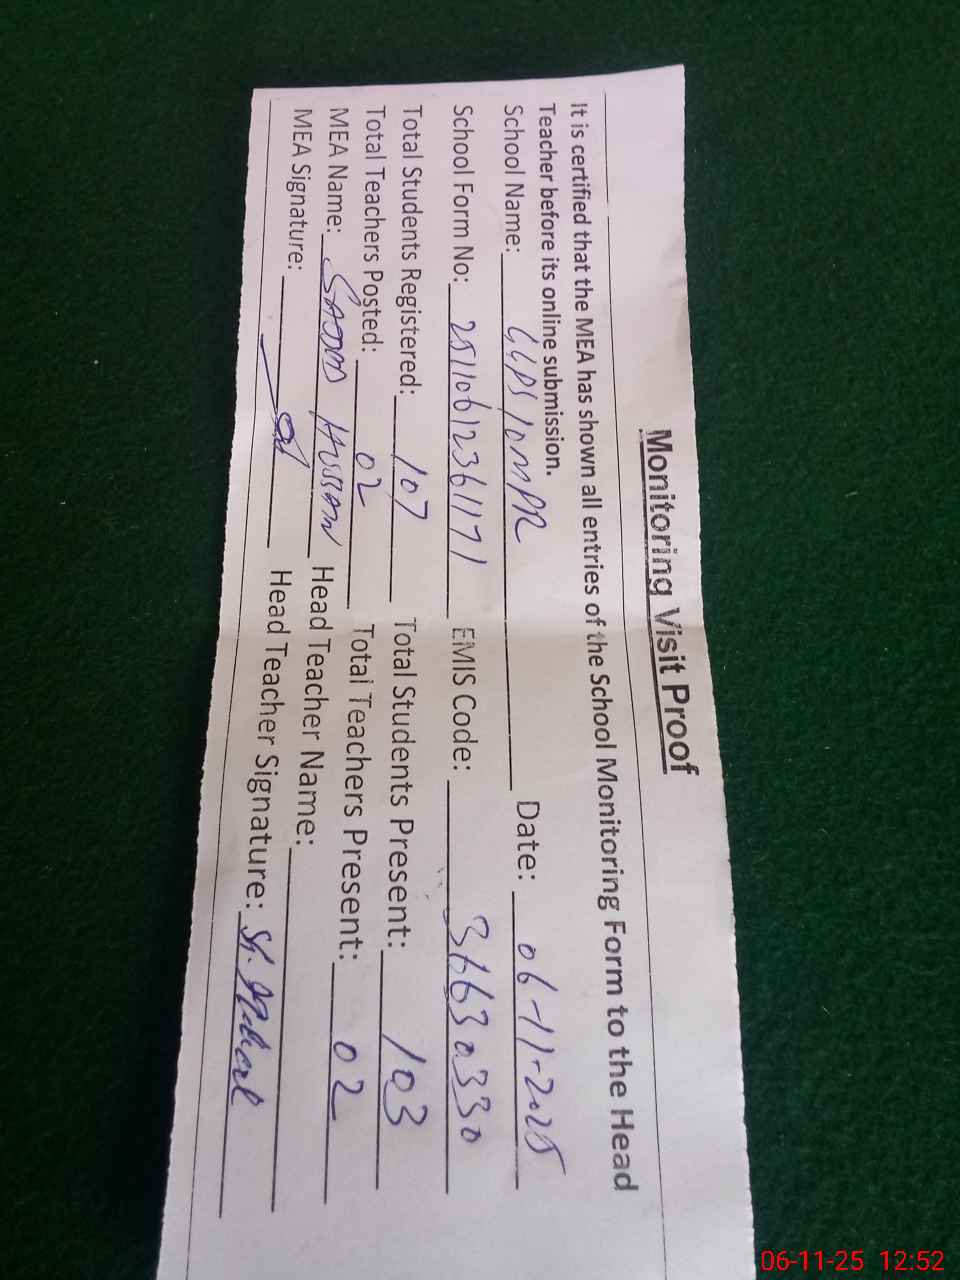 Monitoring Visit Proof
It is certified that the MEA has shown all entries of the School Monitoring Form to the Head
Teacher before its online submission.
School Name: GGPS 10MPR Date: 06-11-2025
School Form No: 25110612361171 EMIS Code: 36630330
Total Students Registered: 107 Total Students Present: 103
Total Teachers Posted: 02 Total Teachers Present: 02
MEA Name: Hussain Head Teacher Name:
MEA Signature: Head Teacher Signature:
06-11-25 12:52